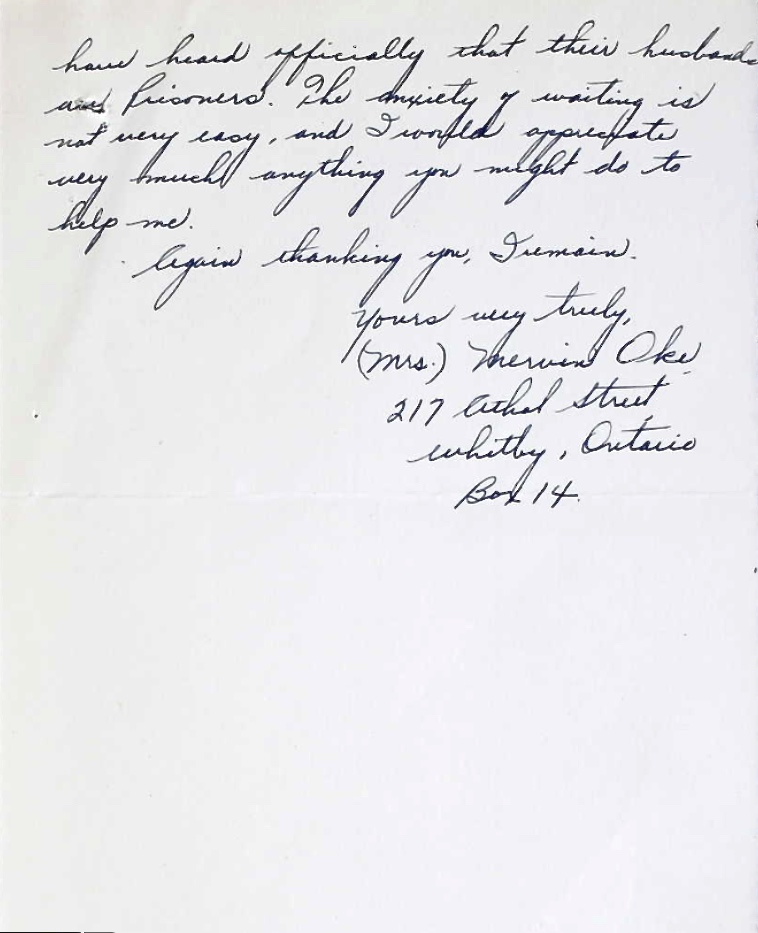 have heard officially that their husbands
are Prisoners. The anxiety of waiting is
not very easy, and I would appreciate
very much anything you might do to
help me.
Again thanking you, I remain.
Yours very truly,
(Mrs.) Mervin Oke
217 Athol Street
Whitby, Ontario
Box 14.